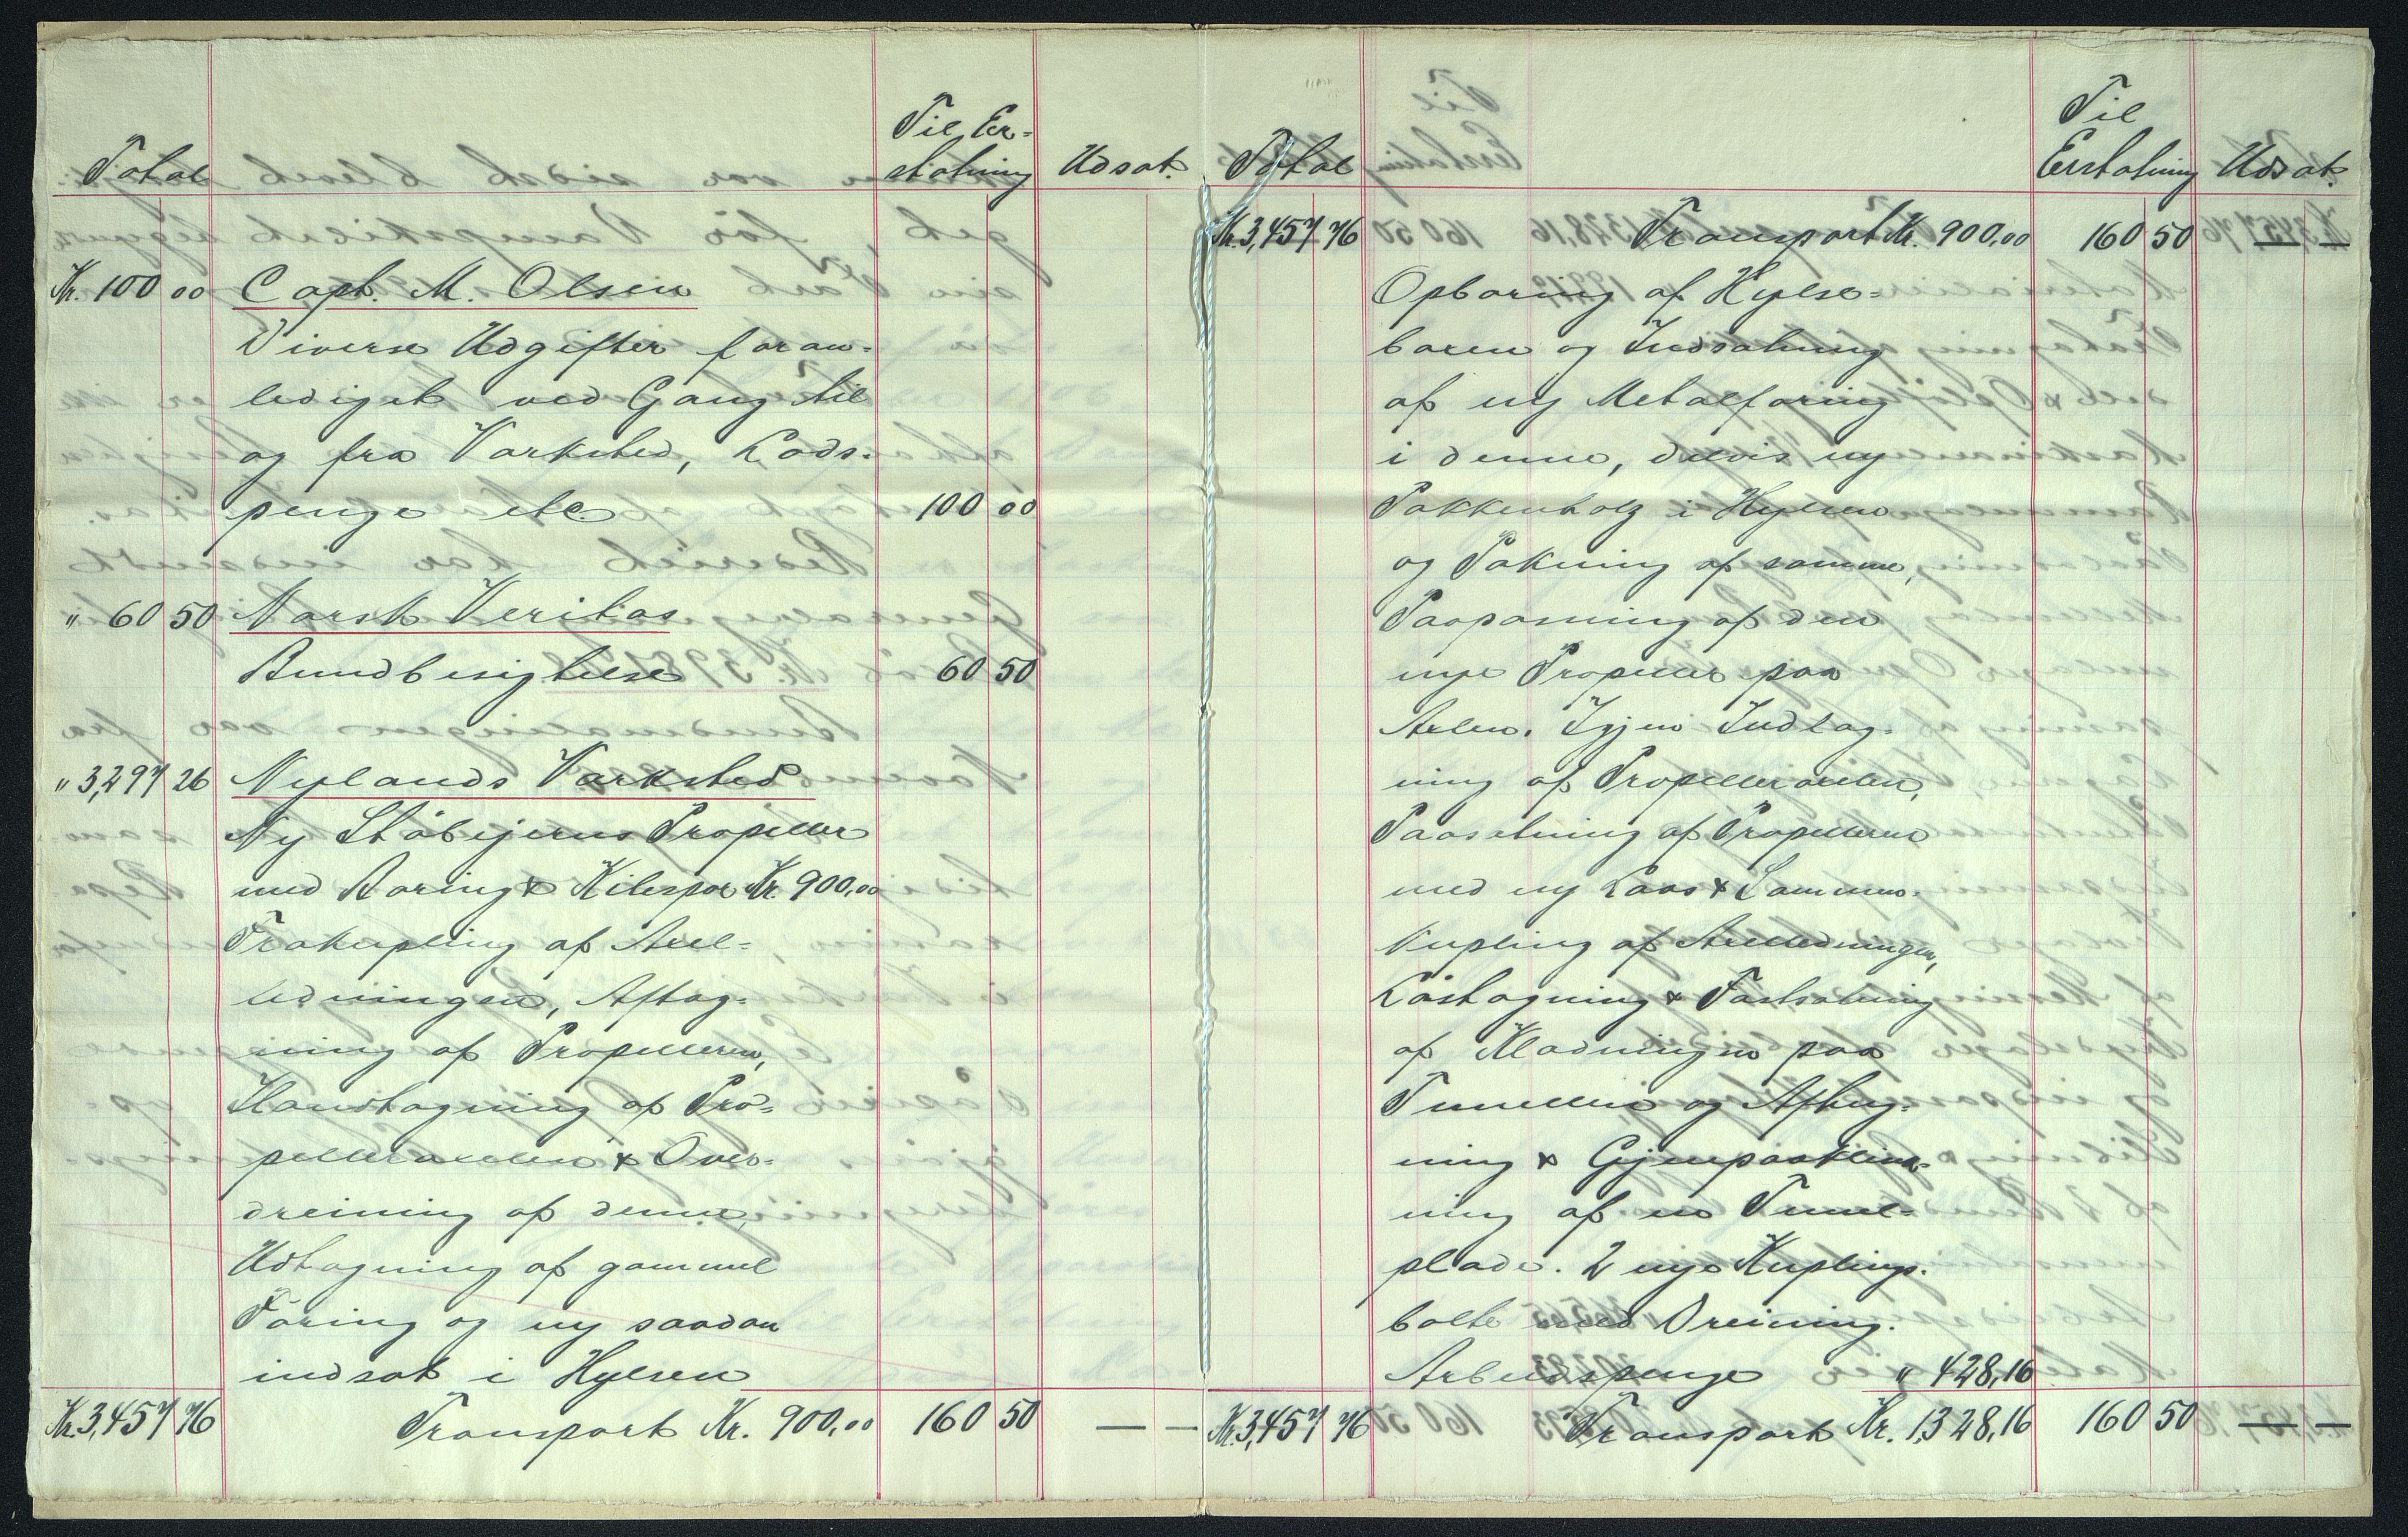 Total
Til Er-
statning
Udsat.
Kr. 100 00 Capt. M. Olsen
Diverse Udgifter foran-
lediget ved Gang til
og fra Værksted, Lods-
penge etc. 100 00
" 60 50 Norsk Veritas
Bundbesigtelse 60 50
" 3,297 26 Nylands Værksted
Ny Støbejerns Propeller
med Boring & Kilespor Kr. 900,00
Frakupling af Axel-
ledningen, Aftag-
ning af Propelleren,
Haandtagning af Pro-
pelleraxelen & Over-
dreining af denne,
Udtagning af gammel
Foring og ny saadan
indsat i Hylsen
Kr. 3,457 76 Transport Kr. 900,00 160 50 — —
Total
Til
Erstatning
Udsat.
Kr. 3,457 76 Transport Kr. 900,00 160 50 — —
Opboring af Hylse-
boren og Indsætning
af ny Metalforing
i denne, delvis ny
Pokkenholz i Hylsen
og Pakning af samme,
Paapasning af den
nye Propeller paa
Axlen. Igjen Indlæg-
ning af Propelleraxelen,
Paasætning af Propelleren
med ny Laas & Sammen-
kupling af Axelledningen,
Løstagning & Fastsætning
af Klædningen paa
Tunellen og Afhug-
ning & Gjenpaaklink-
ning af en Tunel-
plade. 2 nye Kuplings-
bolte med Dreining.
Arbeidspenge " 428,16
Kr. 3,457 76 Transport Kr. 1,328,16 160 50 — —